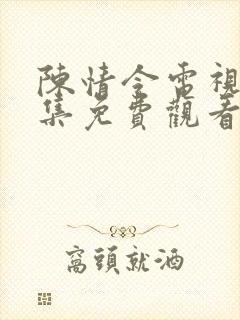 陳情令電視
集免費觀看
窩頭就酒